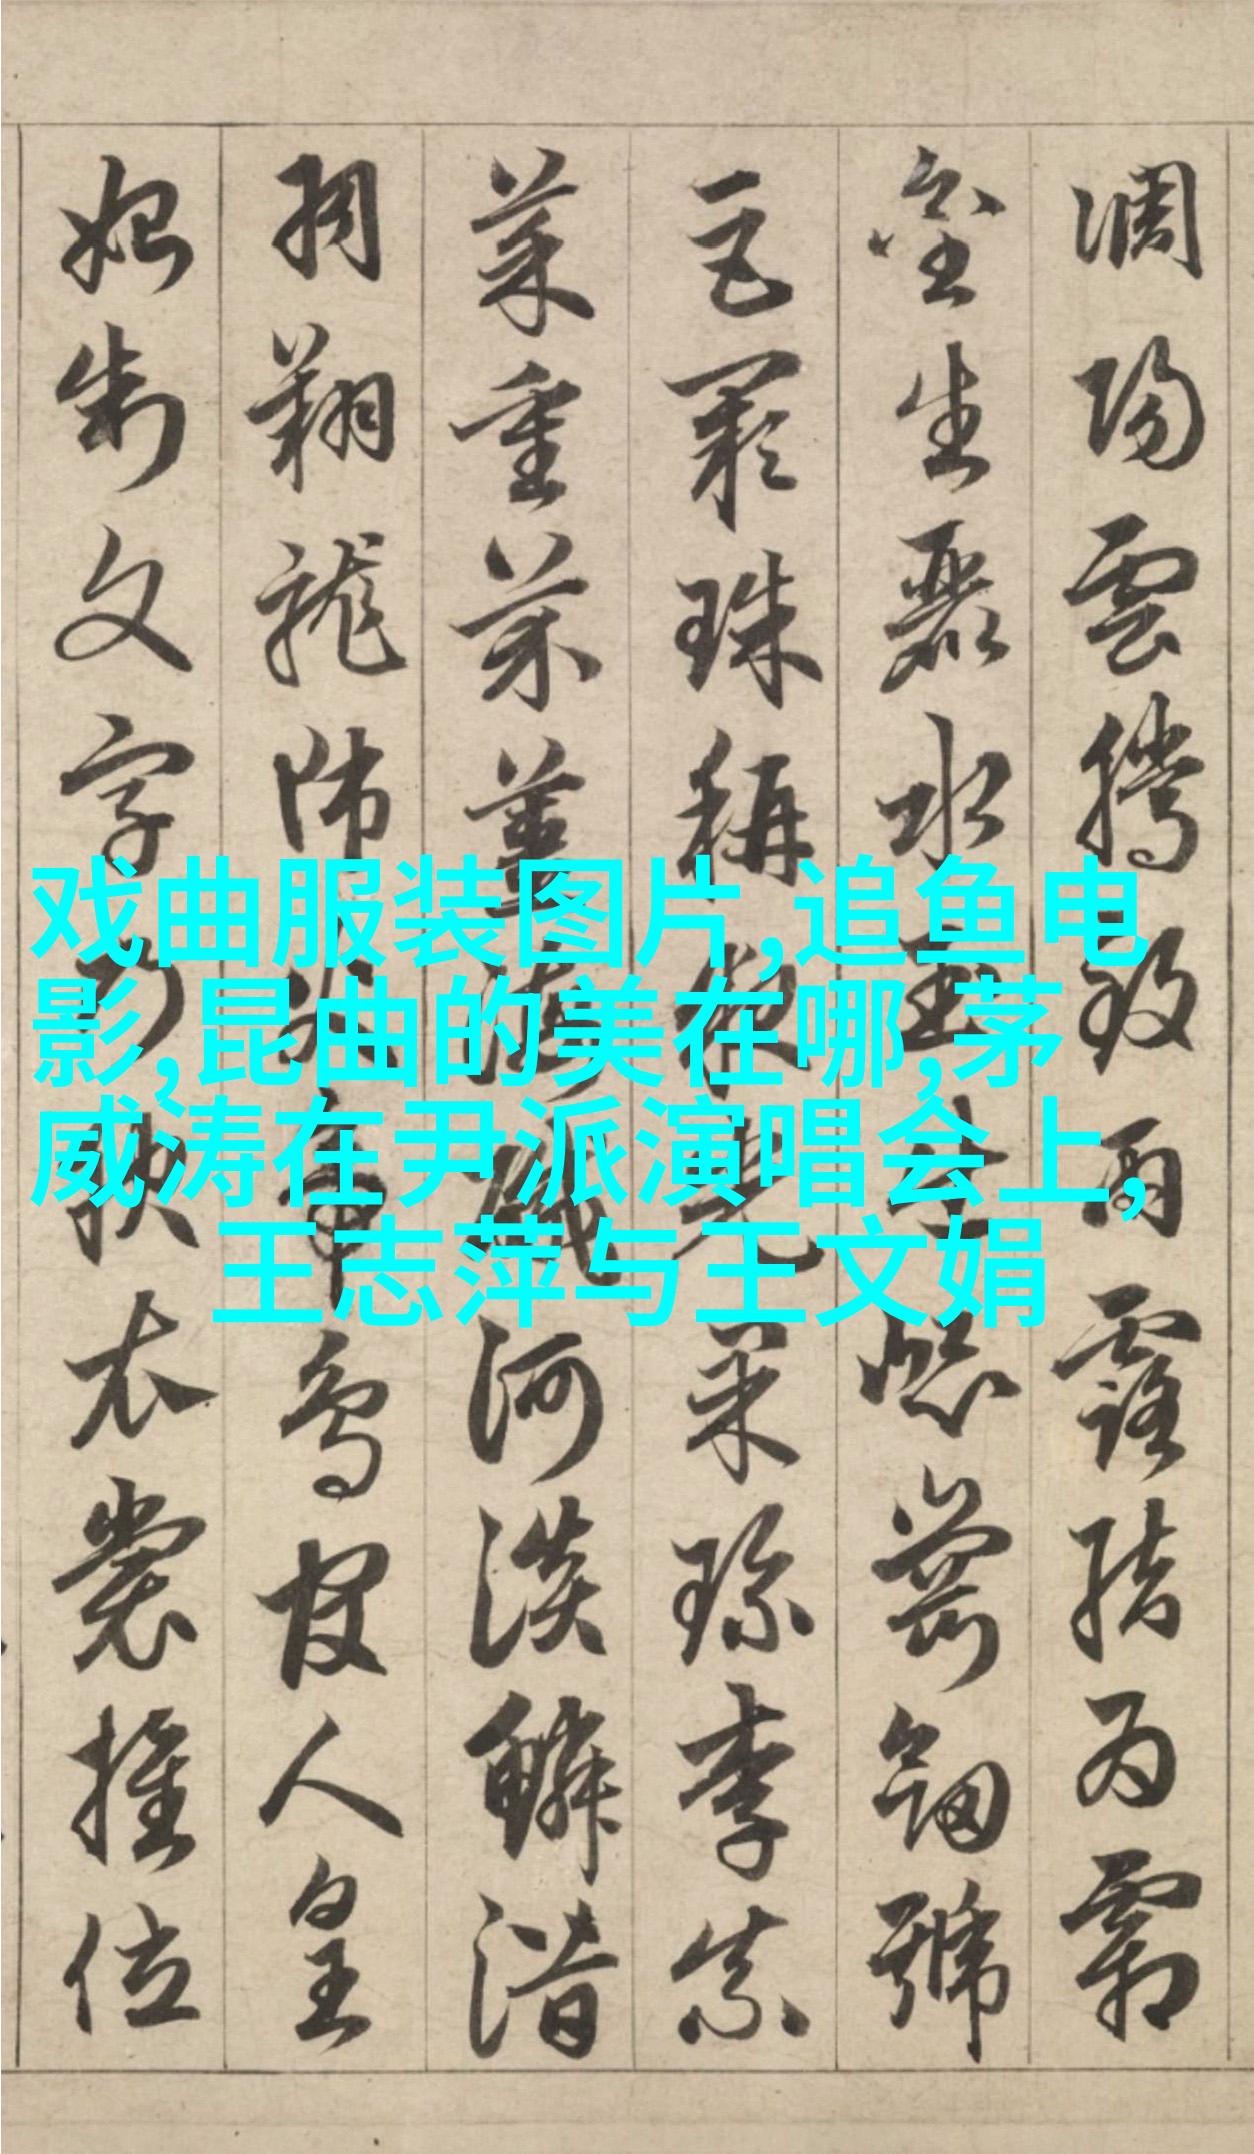 調陽雲騰致雨露結為霜
金生麗水玉出崑崗劍號
巨闕珠稱夜光果珍李柰
菜重芥薑海鹹河淡鱗潛
羽翔龍師火帝鳥官人皇
始制文字乃服衣裳推位
戏曲服装图片,追鱼电
影,昆曲的美在哪,茅
威涛在尹派演唱会上,
王志萍与王文娟